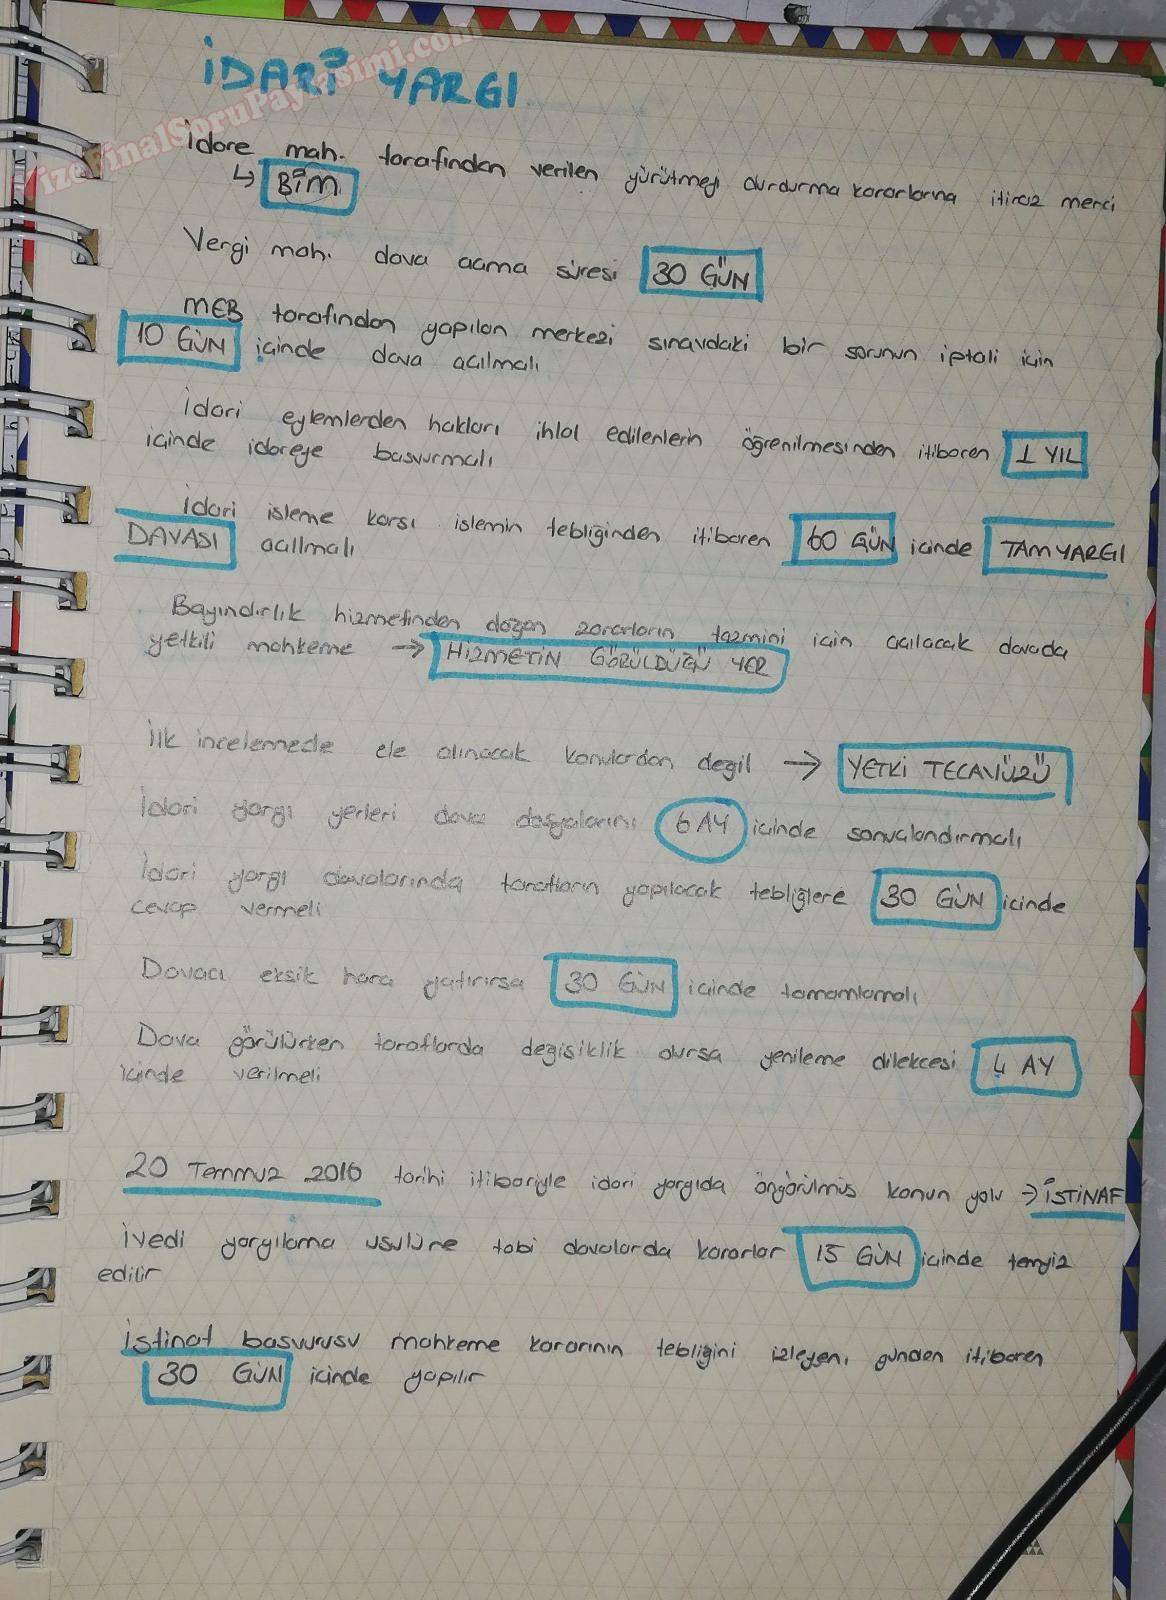 İDARİ YARGI
VizeFinalSoruPaylasimi.com
İdare mah. tarafından verilen yürütmeyi durdurma kararlarına itiraz merci
↳ BİM
Vergi mah. dava acma süresi 30 GÜN
MEB tarafından yapılan merkezi sınavdaki bir sorunun iptali için
10 GÜN içinde dava acılmalı
İdari eylemlerden hakları ihlal edilenlerin öğrenilmesinden itibaren 1 YIL
icinde idareye basvurmalı
İdari isleme karsı islemin tebliğinden itibaren 60 GÜN icinde TAM YARGI
DAVASI acılmalı
Bayındırlık hizmetinden doğan zararların tazmini için acılacak davada
yetkili mahkeme → HİZMETİN GÖRÜLDÜĞÜ YER
İlk incelemede ele alınacak konulardan değil → YETKİ TECAVÜZÜ
İdari yargı yerleri dava dosyalarını 6 AY icinde sonuclandırmalı
İdari yargı davalarında tarafların yapılacak tebliğlere 30 GÜN icinde
cevap vermeli
Davacı eksik harc yatırırsa 30 GÜN icinde tamamlamalı
Dava görülürken taraflarda değisiklik olursa yenileme dilekcesi 4 AY
icinde verilmeli
20 Temmuz 2016 tarihi itibariyle idari yargıda öngörülmüs kanun yolu → İSTİNAF
İvedi yargılama usulüne tabi davalarda kararlar 15 GÜN icinde temyiz
edilir
İstinaf basvurusu mahkeme kararının tebliğini izleyen günden itibaren
30 GÜN icinde yapılır